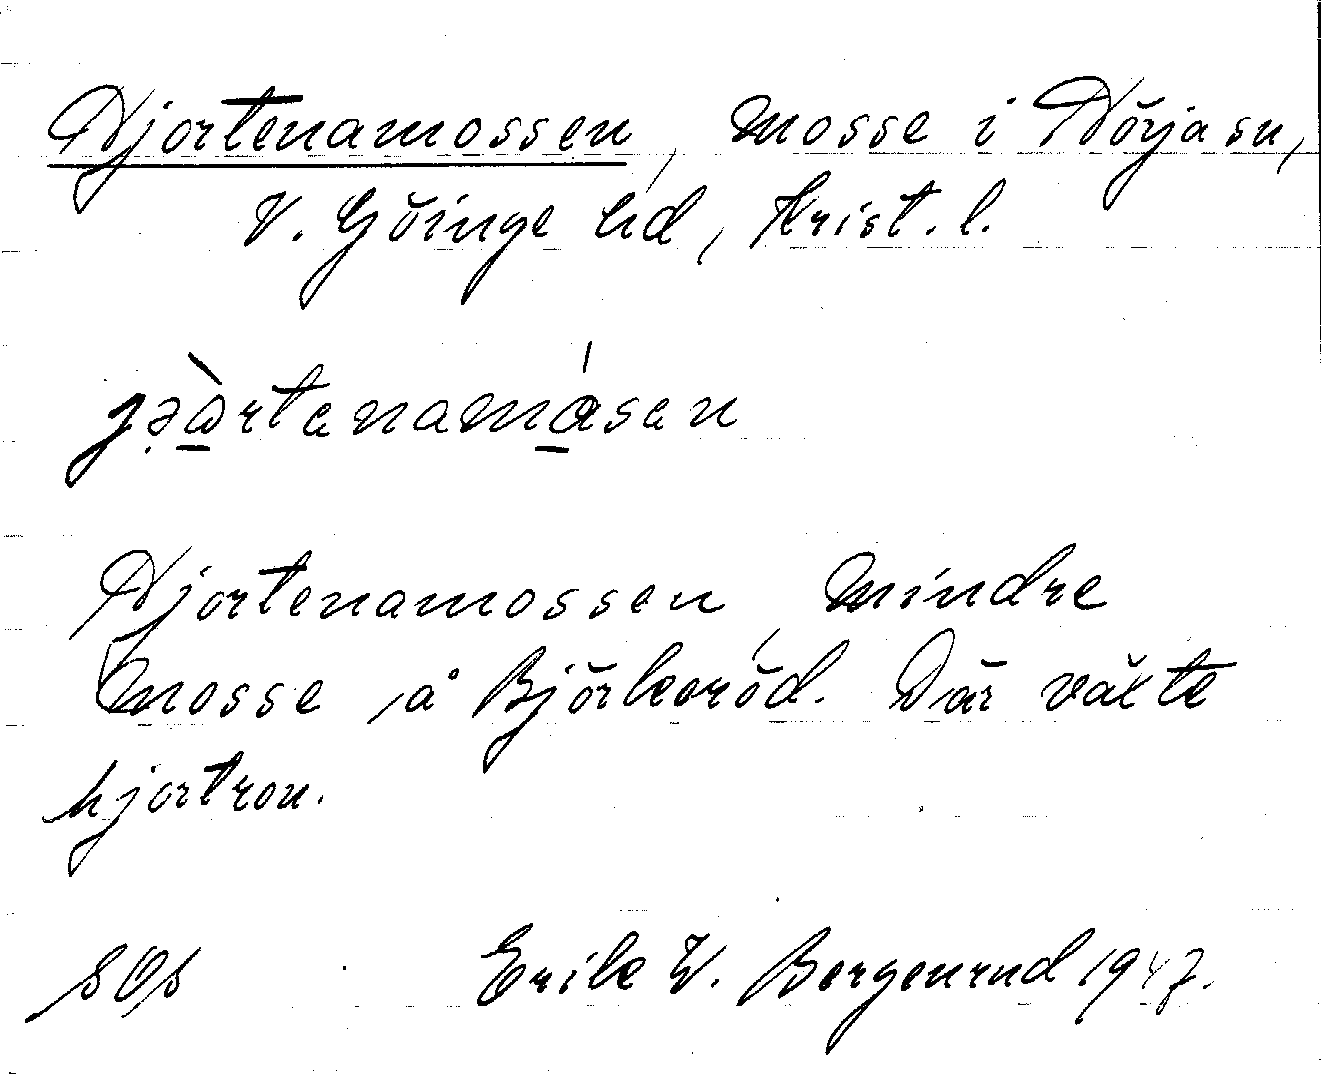 Hjortenamossen, mosse i Nörja sn,
V. Göinge hd, Krist. l.
Hjortenamossen, mindre
mosse å Björkeröd. Där växte
hjortron.
Erik W. Bergenrud 1947.